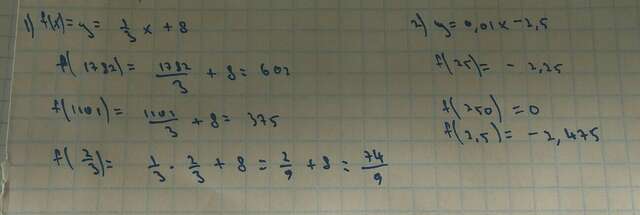 1) f(x) = y = 1/3 x + 8
f(1782) = 1782/3 + 8 = 602
f(1101) = 1101/3 + 8 = 375
f(2/3) = 1/3 · 2/3 + 8 = 2/9 + 8 = 74/9
2) y = 0,01x - 2,5
f(25) = - 2,25
f(250) = 0
f(2,5) = - 2,475